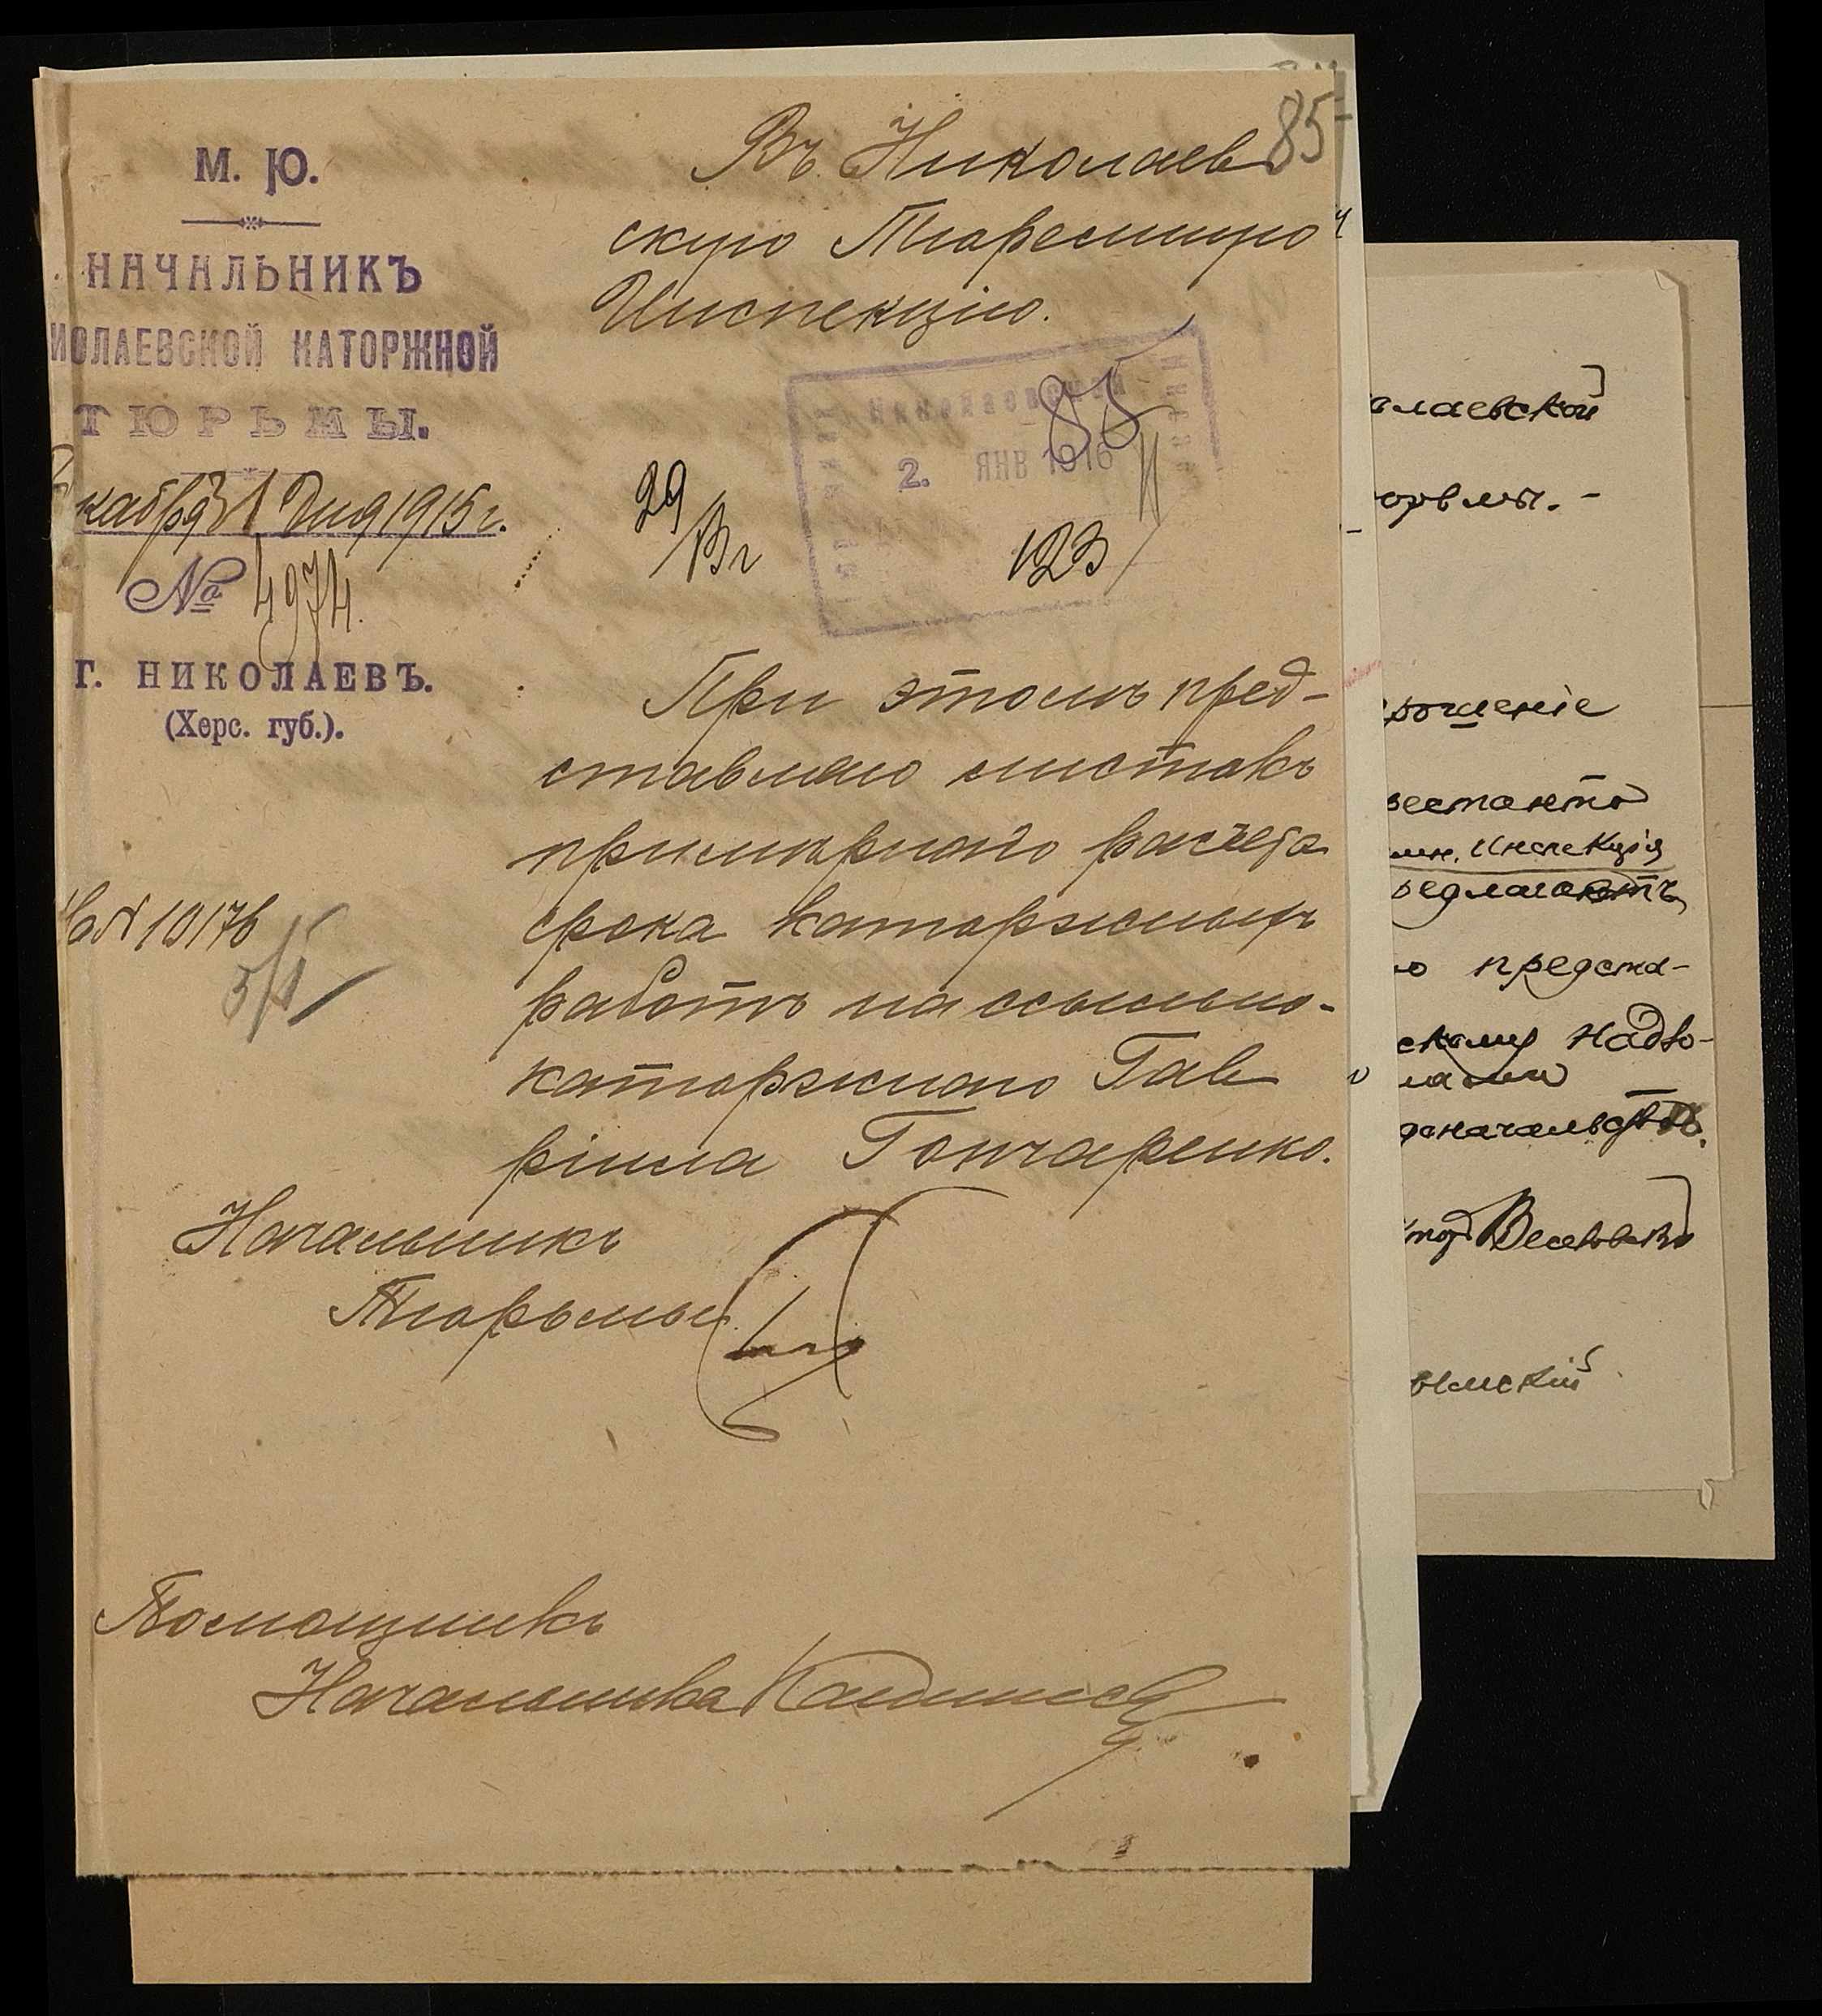 85
М. Ю.
НАЧАЛЬНИКЪ
ИОЛАЕВСКОЙ КАТОРЖНОЙ
ТЮРЬМЫ.
кабря 31 дня 1915 г.
№ 4974.
Г. НИКОЛАЕВЪ.
(Херс. губ.).
На № 10176
5/I
Въ Николаев
скую Тюремную
Инспекцію.
Николаевской
2. ЯНВ 1916
85
29
123
При этомъ пред-
ставляю листокъ
примѣрнаго расчета
срока каторжныхъ
работъ на ссыльно-
каторжнаго Гав
ріила Гончаренко.
Начальникъ
Тюрьмы
Помощникъ
Начальника
олаевской
юрьмы. -
рошеніе
рестанта
Инспекція
редлагаетъ
ю предста-
скому Надзо-
доначальства.